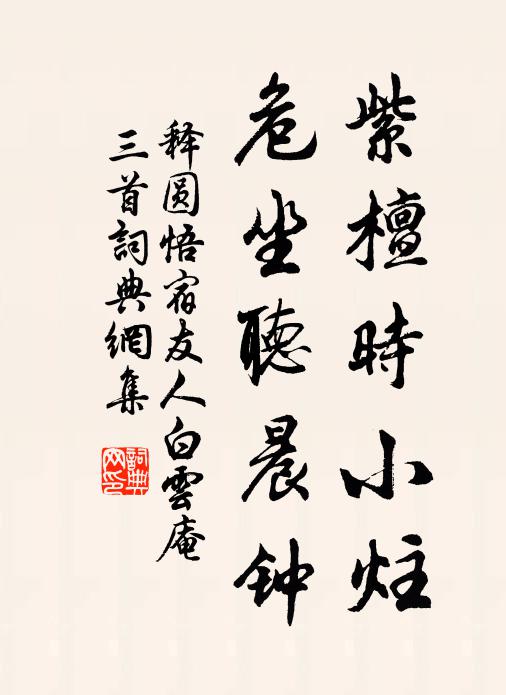 紫檀時小炷
危坐聽晨钟
释圆悟宿友人白雲庵
三首詞典網集
詞典网印